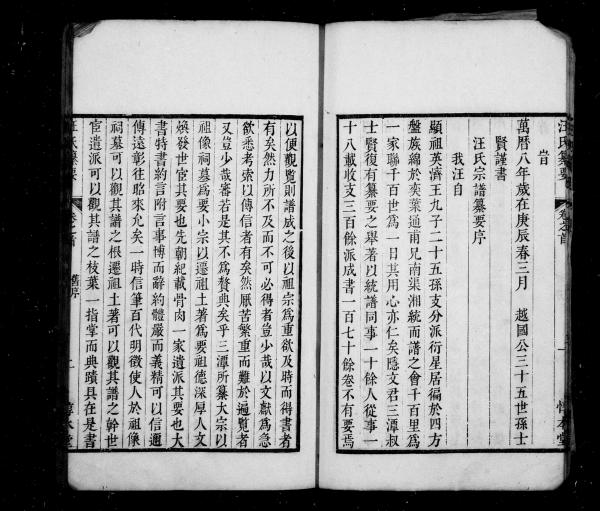 汪氏纂要
卷之首
一
惇本堂
旨
萬曆八年歲在庚辰春三月 越國公三十五世孫士
賢謹書
汪氏宗譜纂要序
我汪自
顯祖英濟王九子二十五孫支分派衍星居徧於四方
盤族綿於奕葉通甫兄南渠湘統而譜之會千百里爲
一家聯千百世爲一日其用心亦仁矣隱文君三潭叔
士賢復有纂要之舉著以統譜同事一十餘人從事一
十八載收支三百餘派成書一百七十餘卷不有要焉
以便觀覽則譜成之後以祖宗爲重欲及時而得書者
有矣然力所不及而不可必得者豈少哉以文獻爲急
欲悉考索以傳信者有矣然厭苦繁重而難於遍覧者
又豈少哉審若是其不爲贅典矣乎三潭所纂大宗以
祖像祠墓爲要小宗以遷祖土著爲要祖德深厚人文
煥發世宦其要也先朝紀載骨肉一家遺派其要也大
書特書約言附言事博而辭約體嚴而義精可以信邇
傳遠彰往昭來允矣一時信筆百代明徵使人於祖像
祠墓可以觀其譜之根遷祖土著可以觀其譜之幹世
宦遺派可以觀其譜之枝葉一指掌而典蹟具在是書
汪氏纂要
卷之首
舊序
二
惇本堂